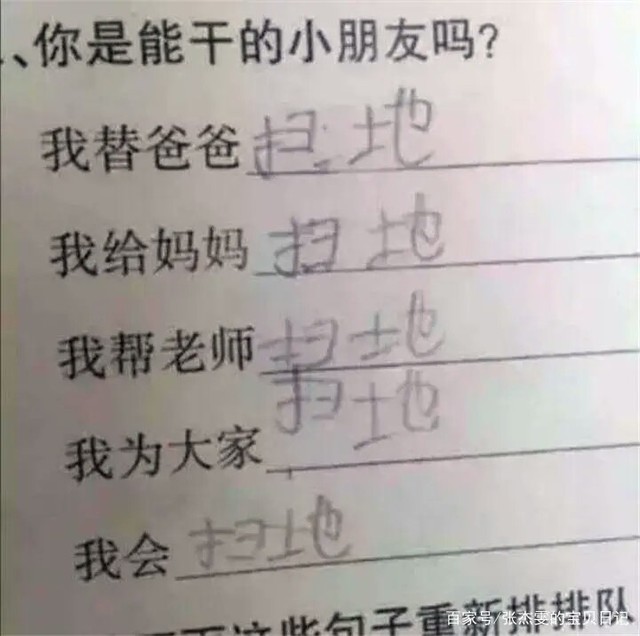 、你是能干的小朋友吗?
我替爸爸扫地
我给妈妈扫地
我帮老师扫地
我为大家扫地
我会扫地
下这些句子重新排排队
百家号/张杰雯的宝贝日记